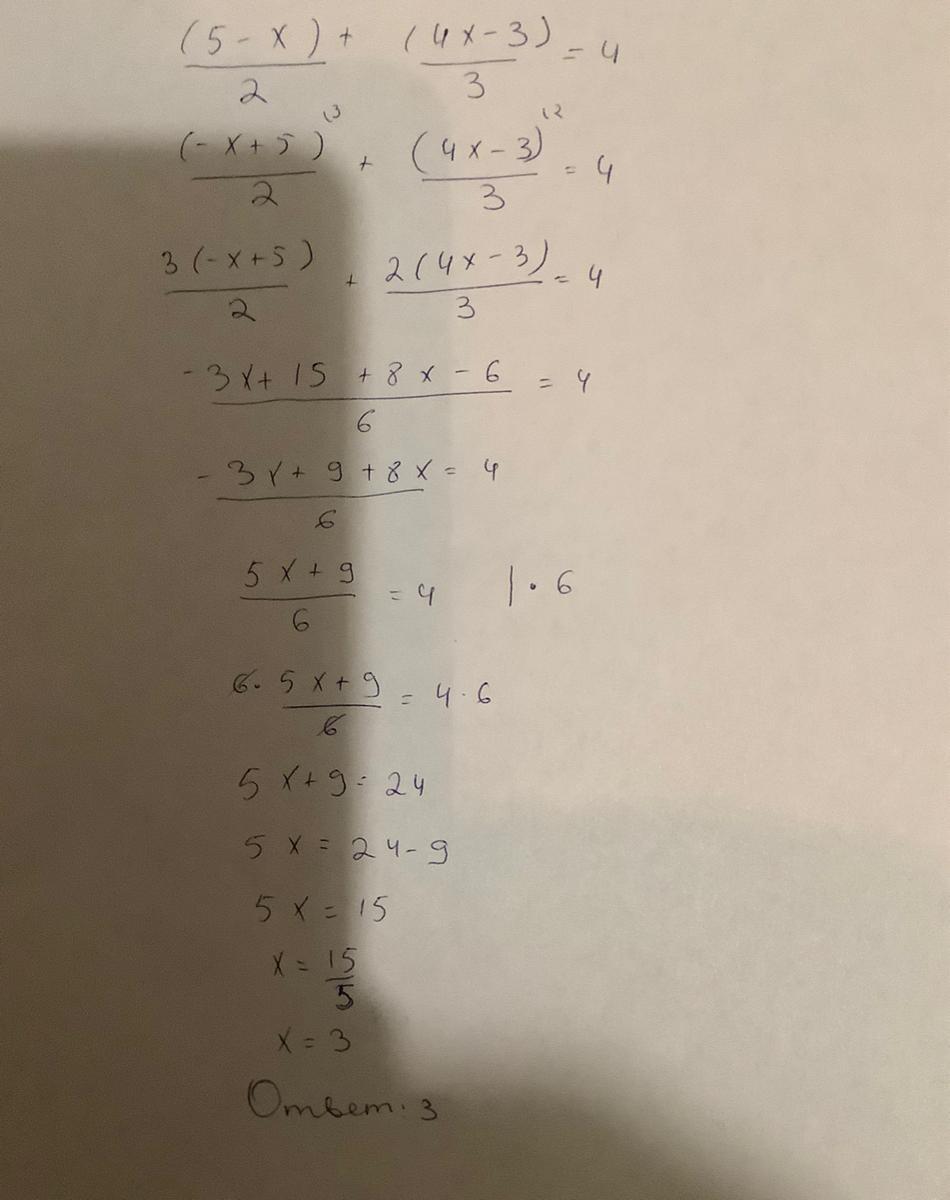 (5 - x)/2 + (4x - 3)/3 = 4
(-x + 5)⁽³/2 + (4x - 3)⁽²/3 = 4
3(-x + 5)/2 + 2(4x - 3)/3 = 4
-3x + 15 + 8x - 6/6 = 4
-3x + 9 + 8x/6 = 4
5x + 9/6 = 4 | · 6
6 · 5x + 9/6 = 4 · 6
5x + 9 = 24
5x = 24 - 9
5x = 15
x = 15/5
x = 3
Ответ: 3